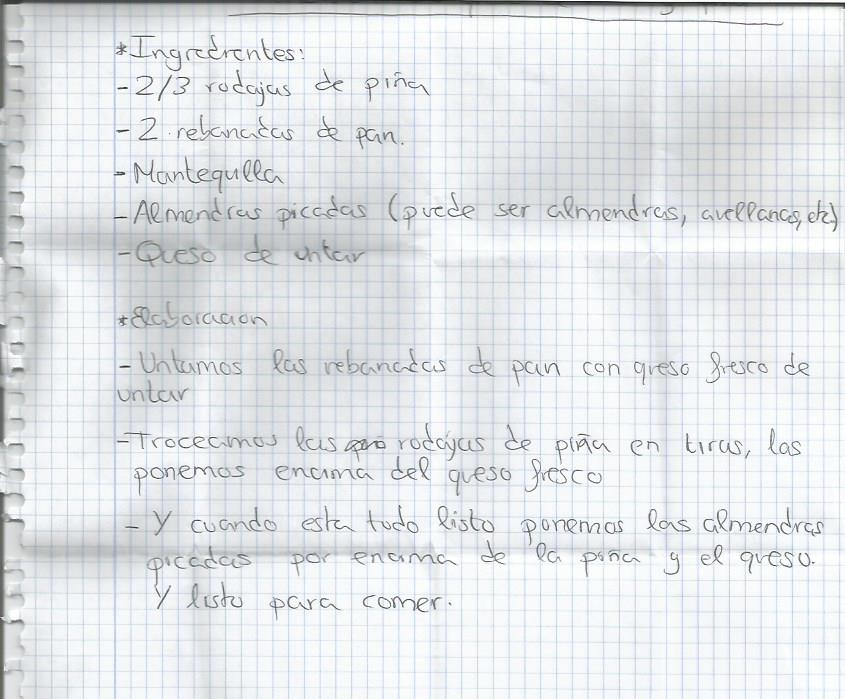 *Ingredientes:
-2/3 rodajas de piña
-2 rebanadas de pan.
-Mantequilla
-Almendras picadas (puede ser almendras, avellanas, etc)
-Queso de untar
*Elaboracion
-Untamos las rebanadas de pan con queso fresco de
untar
-Troceamos las rodajas de piña en tiras, las
ponemos encima del queso fresco
- Y cuando esta todo listo ponemos las almendras
picadas por encima de la piña y el queso.
Y listo para comer.